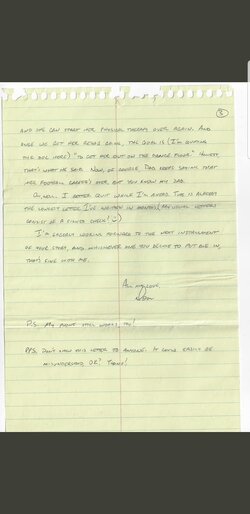 3
AND WE CAN START HER PHYSICAL THERAPY OVER AGAIN. AND
ONCE WE GET HER GOING, THE GOAL IS (I'M QUOTING
THE DOC HERE) "TO GET HER OUT ON THE DANCE FLOOR." HONEST
THAT'S WHAT HE SAID. NOW, OF COURSE DAD KEEPS SAYING THAT
HER FOOTBALL CAREER'S OVER, BUT YOU KNOW MY DAD.
WELL, I BETTER QUIT WHILE I'M AHEAD. THIS IS ALREADY
THE LONGEST LETTER I'VE WRITTEN IN MONTHS (MY USUAL LETTERS
CONSIST OF A SIGNED CHECK! :-)
I'M EAGERLY LOOKING FORWARD TO THE NEXT INSTALLMENT
OF YOUR STORY, AND WHICHEVER ONE YOU DECIDE TO PUT ME IN,
THAT'S FINE WITH ME.
ALL MY LOVE,
P.S. MY PHONE STILL WORKS, TOO!
PPS. DON'T SHOW THIS LETTER TO ANYONE. IT COULD EASILY BE
MISUNDERSTOOD, OK? THANKS!